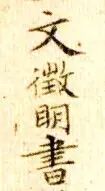 文徵明書